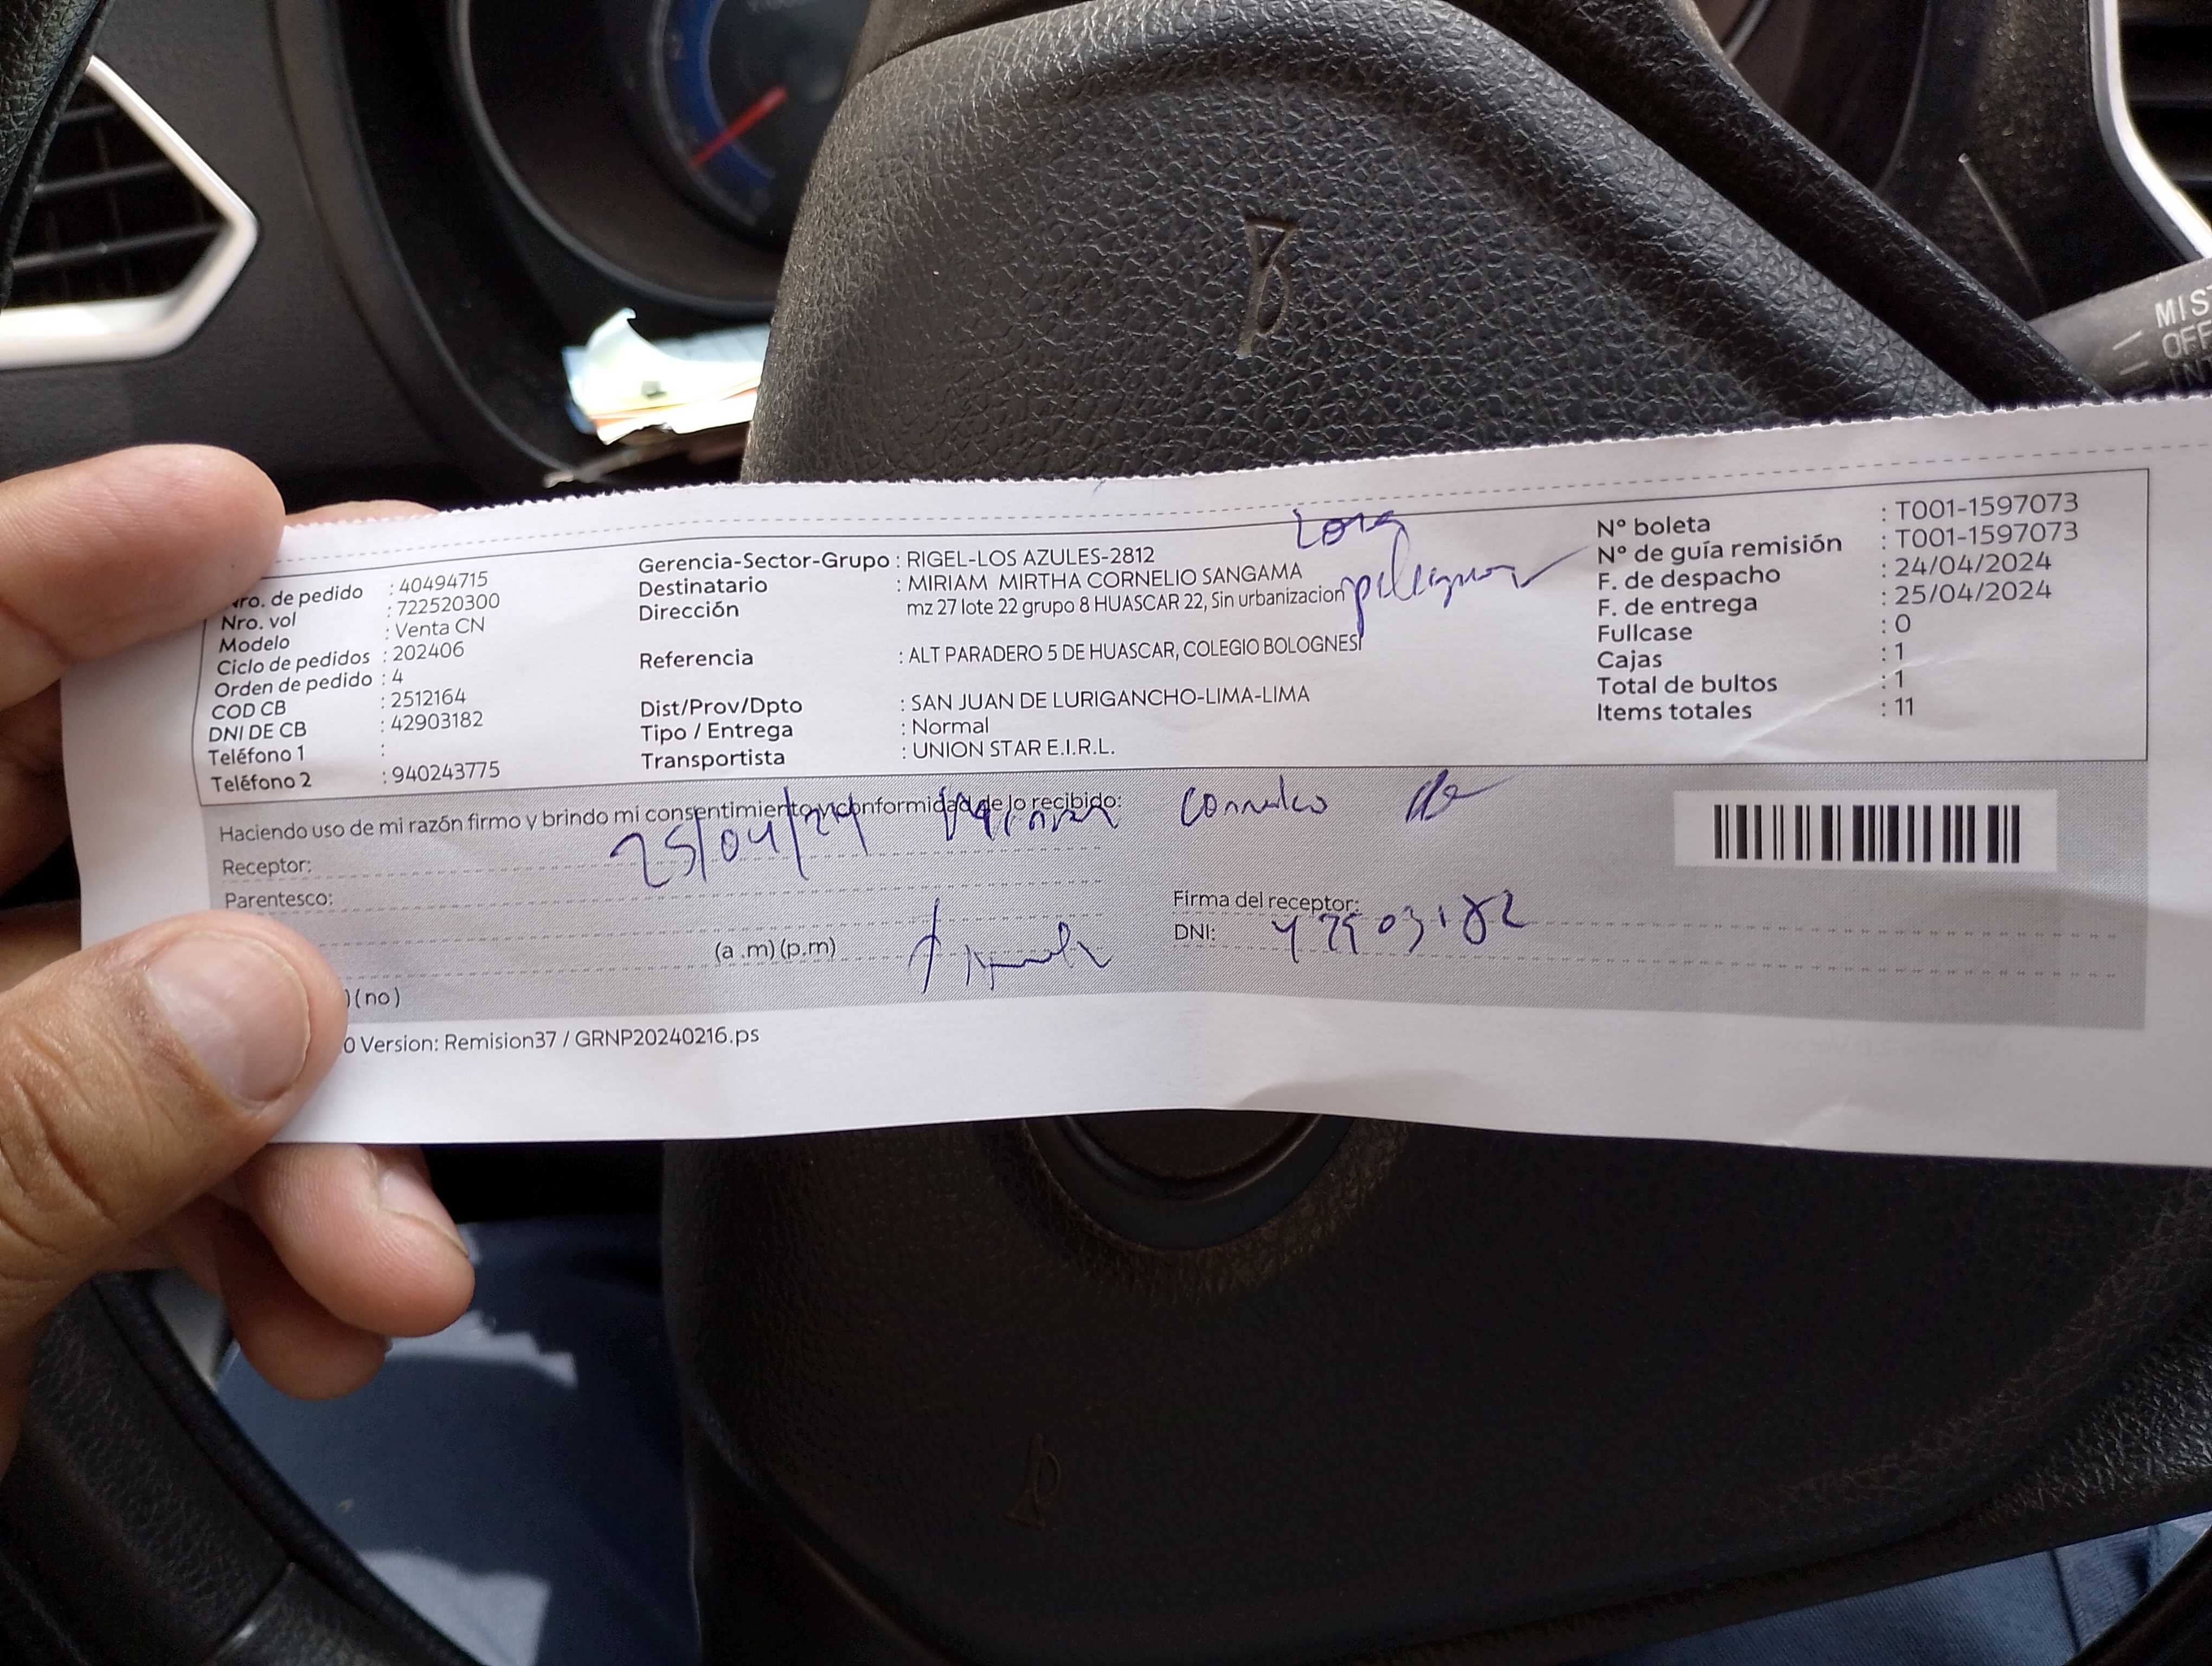 Nro. de pedido : 40494715
Nro. vol : 722520300
Modelo : Venta CN
Ciclo de pedidos : 202406
Orden de pedido : 4
COD CB : 2512164
DNI DE CB : 42903182
Teléfono 1 :
Teléfono 2 : 940243775
Gerencia-Sector-Grupo : RIGEL-LOS AZULES-2812
Destinatario : MIRIAM MIRTHA CORNELIO SANGAMA
Dirección mz 27 lote 22 grupo 8 HUASCAR 22, Sin urbanizacion
Referencia : ALT PARADERO 5 DE HUASCAR, COLEGIO BOLOGNESI
Dist/Prov/Dpto : SAN JUAN DE LURIGANCHO-LIMA-LIMA
Tipo / Entrega : Normal
Transportista : UNION STAR E.I.R.L.
Nº boleta : T001-1597073
Nº de guía remisión : T001-1597073
F. de despacho : 24/04/2024
F. de entrega : 25/04/2024
Fullcase : 0
Cajas : 1
Total de bultos : 1
Items totales : 11
Haciendo uso de mi razón firmo y brindo mi consentimiento y conformidad de lo recibido:
25/04/24
Receptor:
Parentesco:
Firma del receptor:
(a .m) (p.m)
DNI: 42903182
) (no)
0 Version: Remision37 / GRNP20240216.ps
MIST
OFF